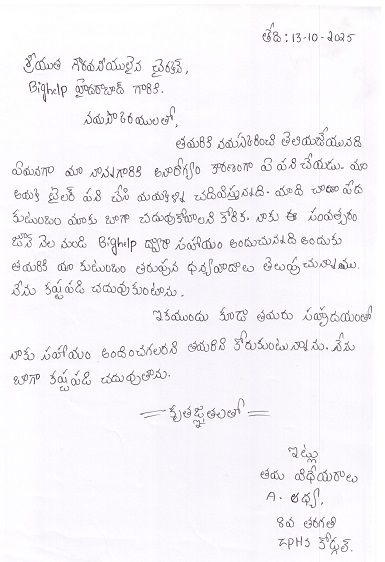 తేది : 13-10-2025
శ్రీయుత గౌరవనీయులైన చైర్మన్,
Bighelp హైదరాబాద్ గారికి.
నమస్కారములతో,
తమరికి నమస్కరించి తెలియచేయునది
ఏమనగా మా నాన్నగారికి అనారోగ్యం కారణంగా ఏ పని చేయడు. మా
అమ్మ టైలర్ పని చేసి మమ్మల్ని చదివిస్తున్నది. మాది చాలా పేద
కుటుంబం మాకు బాగా చదువుకోవాలని కోరిక. నాకు ఈ సంవత్సరం
జూన్ నెల నుండి Bighelp ద్వారా సహాయం అందుచున్నది అందుకు
తమరికి మా కుటుంబం తరుపున ధన్యవాదాలు తెలుపుచున్నాము.
నేను కష్టపడి చదువుకుంటాను.
ఇకముందు కూడా తమరు సహృదయంతో
నాకు సహాయం అందించగలరని తమరిని కోరుకుంటున్నాను. నేను
బాగా కష్టపడి చదువుతాను.
కృతజ్ఞతలతో
ఇట్లు
తమ విధేయురాలు
A.
8వ తరగతి
ZPHS